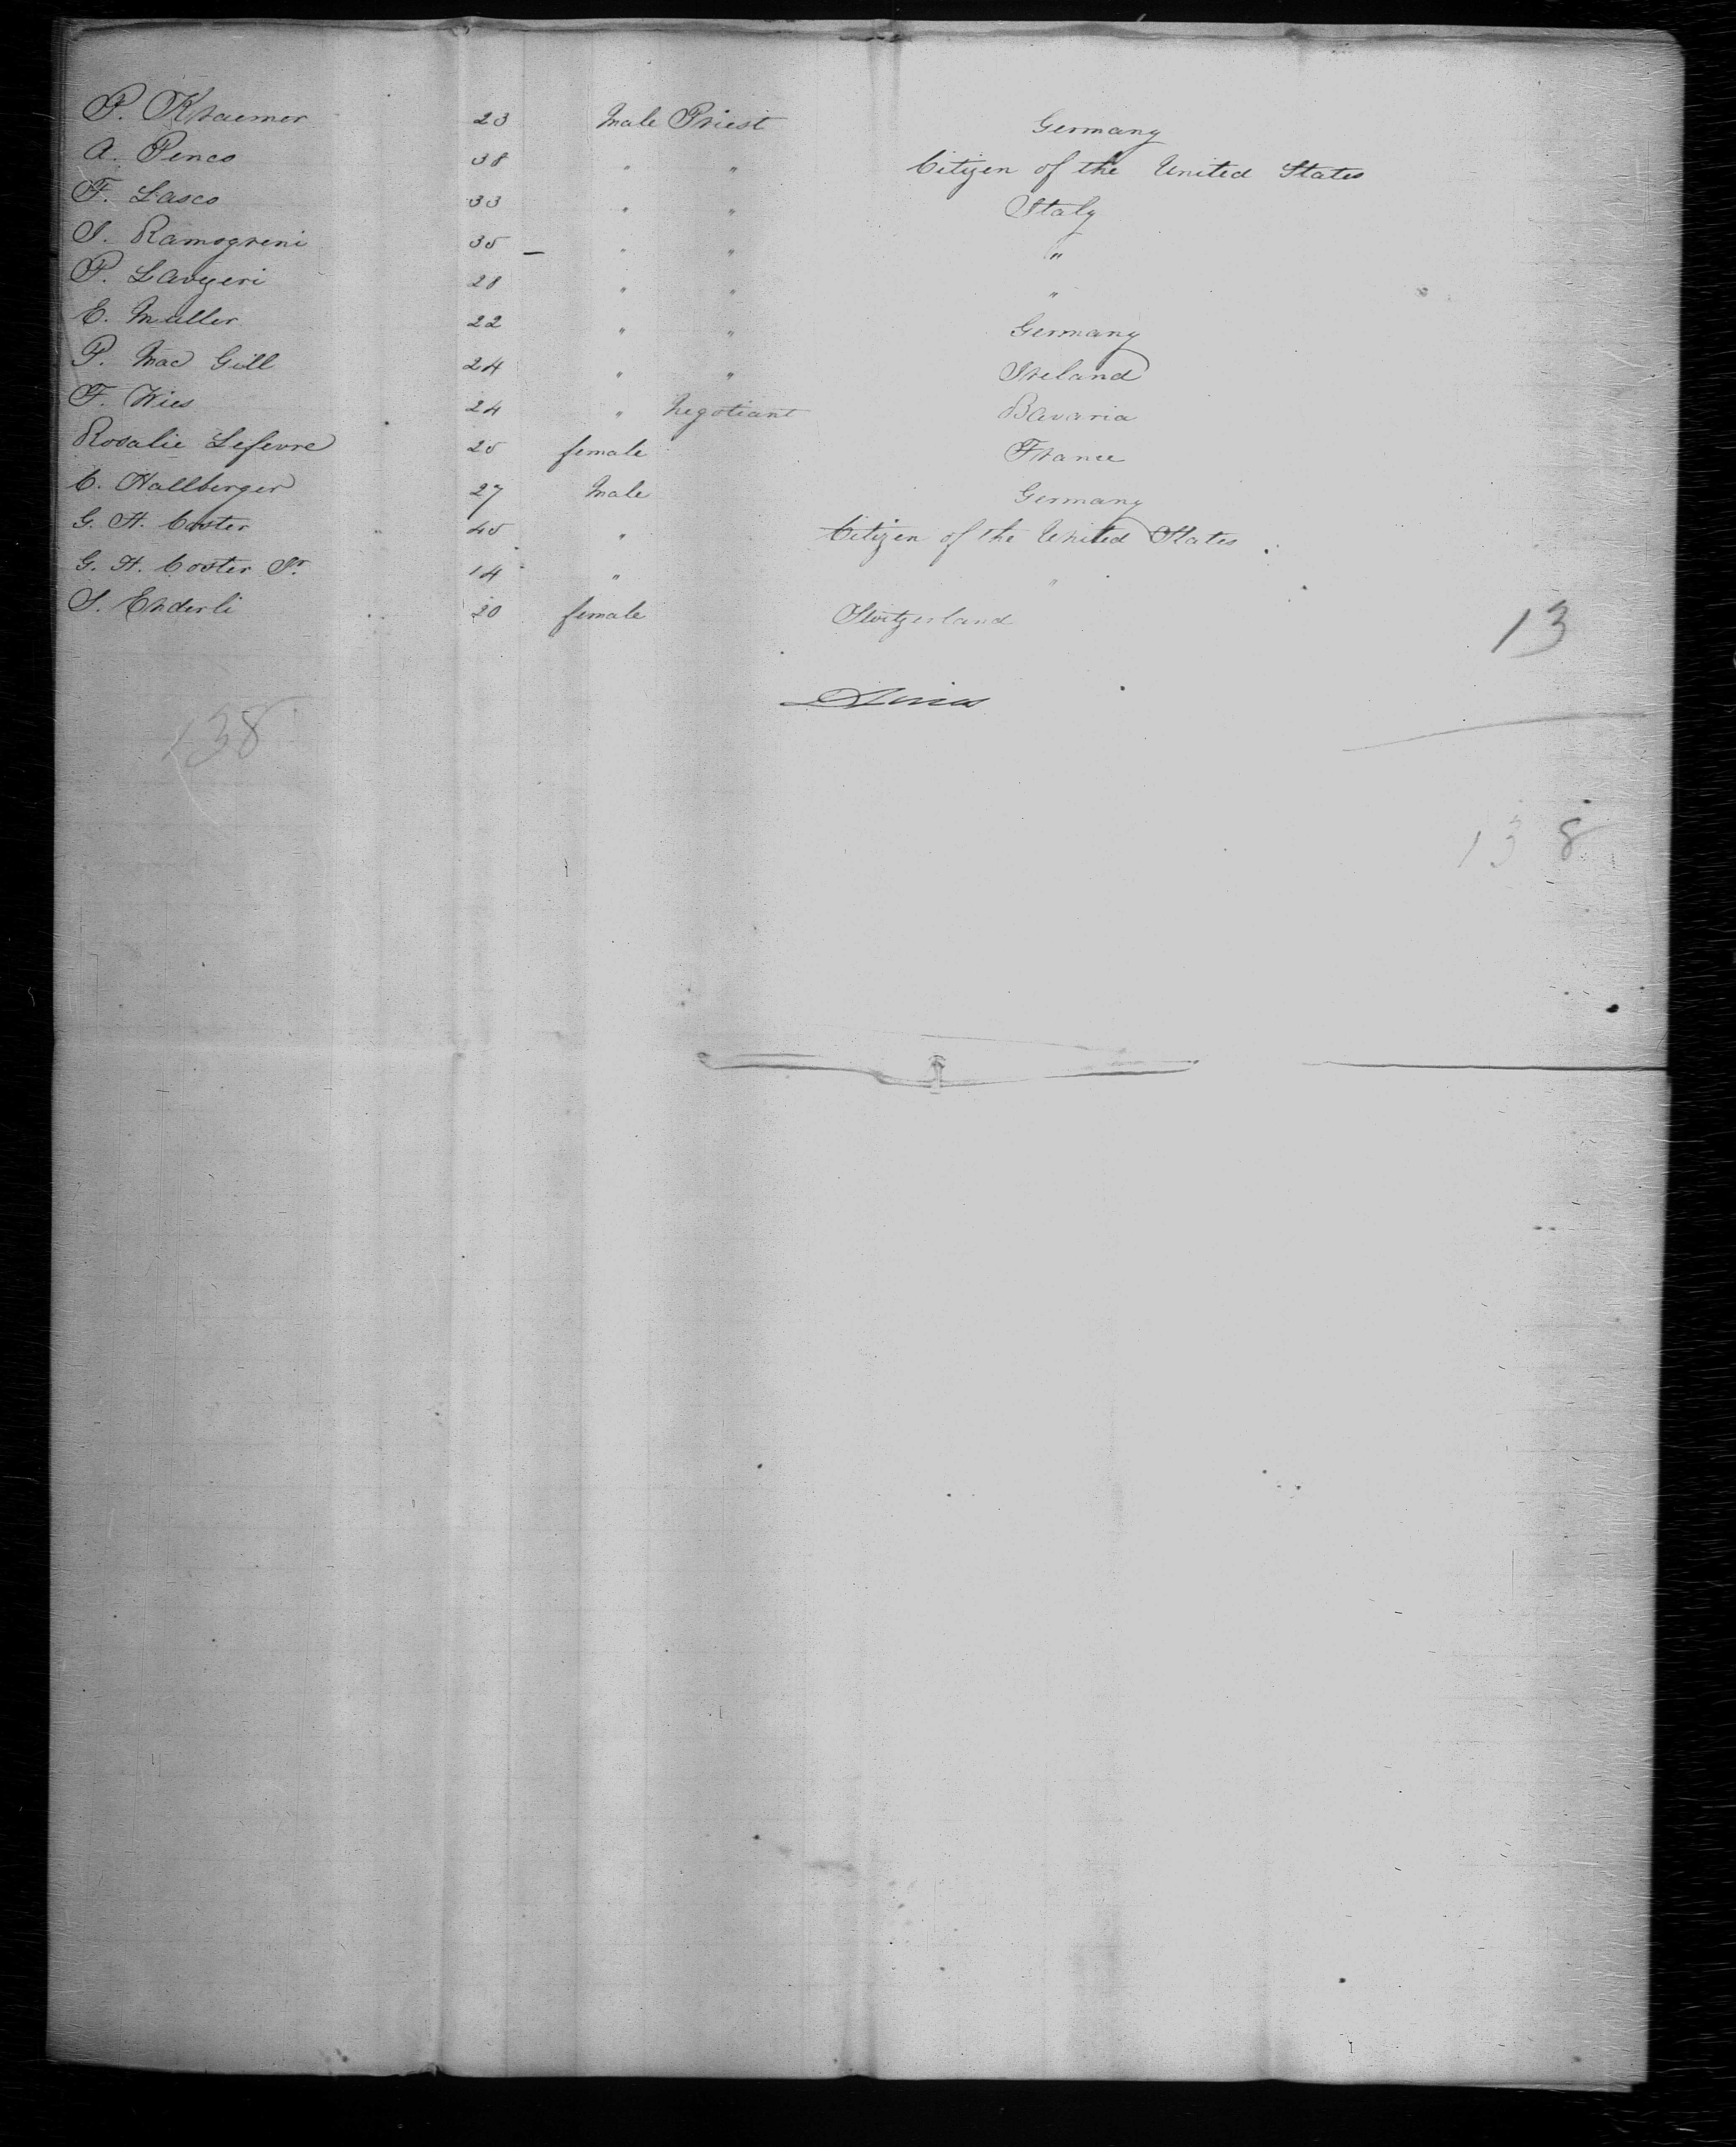 P. Kraemer 23 Male Priest Germany
A. Penco 38 " " Citizen of the United States
F. Lasco 33 " " Italy
S. Ramogreni 35 – " " "
P. Lavgeri 28 " " "
E. Muller 22 " " Germany
P. Mac Gill 24 " " Ireland
F. Wies 24 " Negotiant Bavaria
Rosalie Lefevre 25 female France
C. Hallberger 27 Male Germany
G. H. Coster 45 " Citizen of the United States
G. H. Coster Jr. 14 " "
S. Enderli 20 female Switzerland
13
138
138